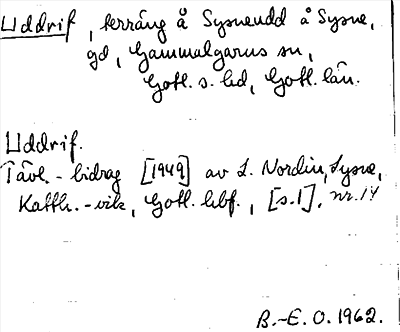 Uddrif, terräng å Sysneudd å Sysne,
gd, Gammalgarns sn,
Gotl. s. hd, Gotl. län.
Uddrif.
Tävl.-bidrag [1949] av L. Nordin, Sysne,
Katth.-vik, Gotl. hbf., [s.1], nr. 14
B.-E. O. 1962.